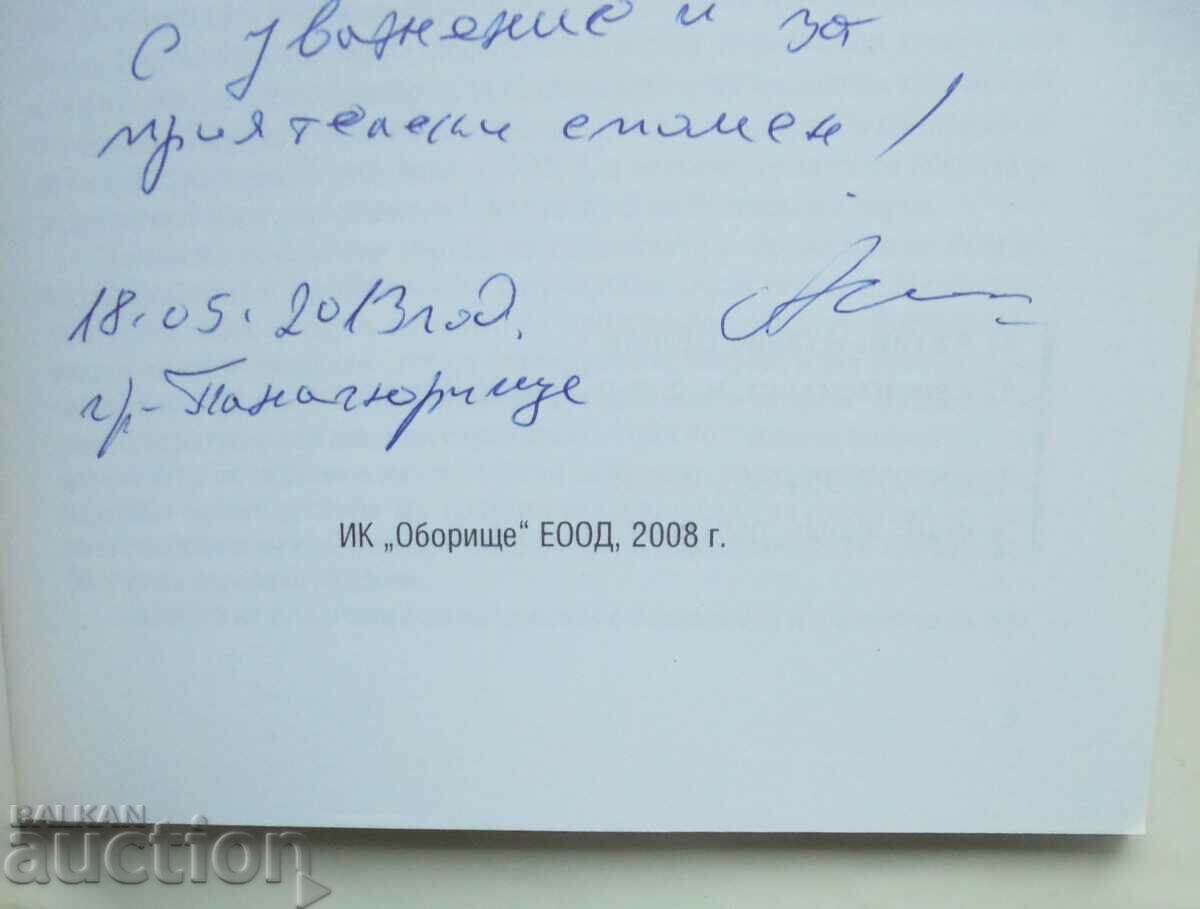 С уважение и за
приятелски спомен!
18.05.2013 год.
гр. Панагюрище
ИК „Оборище“ ЕООД, 2008 г.
BALKAN
auction